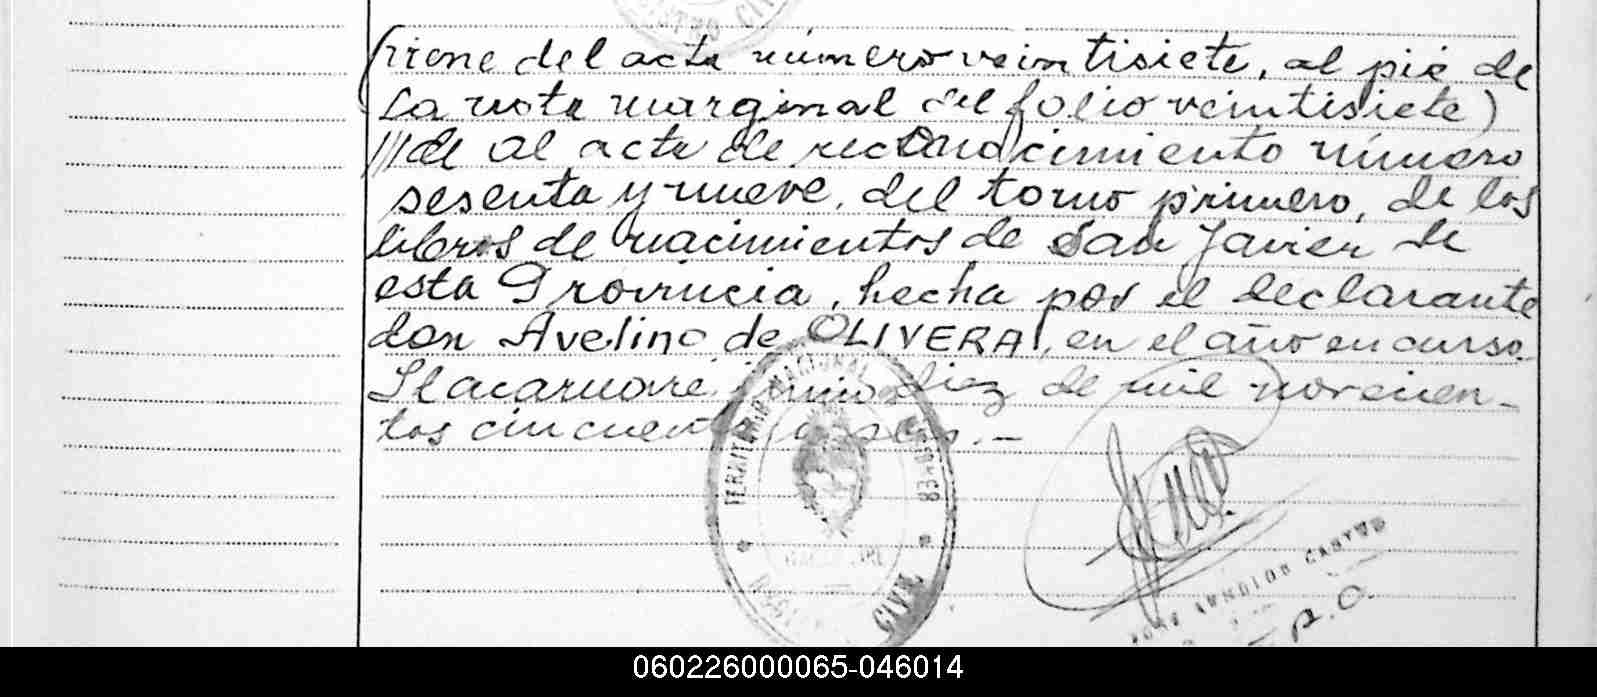 REGISTRO CIVIL
(viene del acta número veintisiete, al pié de
la nota marginal del folio veintisiete)
///de al acta de reconocimiento número
sesenta y nueve, del tomo primero, de los
libros de nacimientos de San Javier de
esta Provincia, hecha por el declarante
don Avelino de OLIVERA, en el año en curso.
Itacaruaré, junio diez de mil novecien-
tos cincuenta
TERRITORIO NACIONAL
CIVIL
CASTRO
P.O.
060226000065-046014